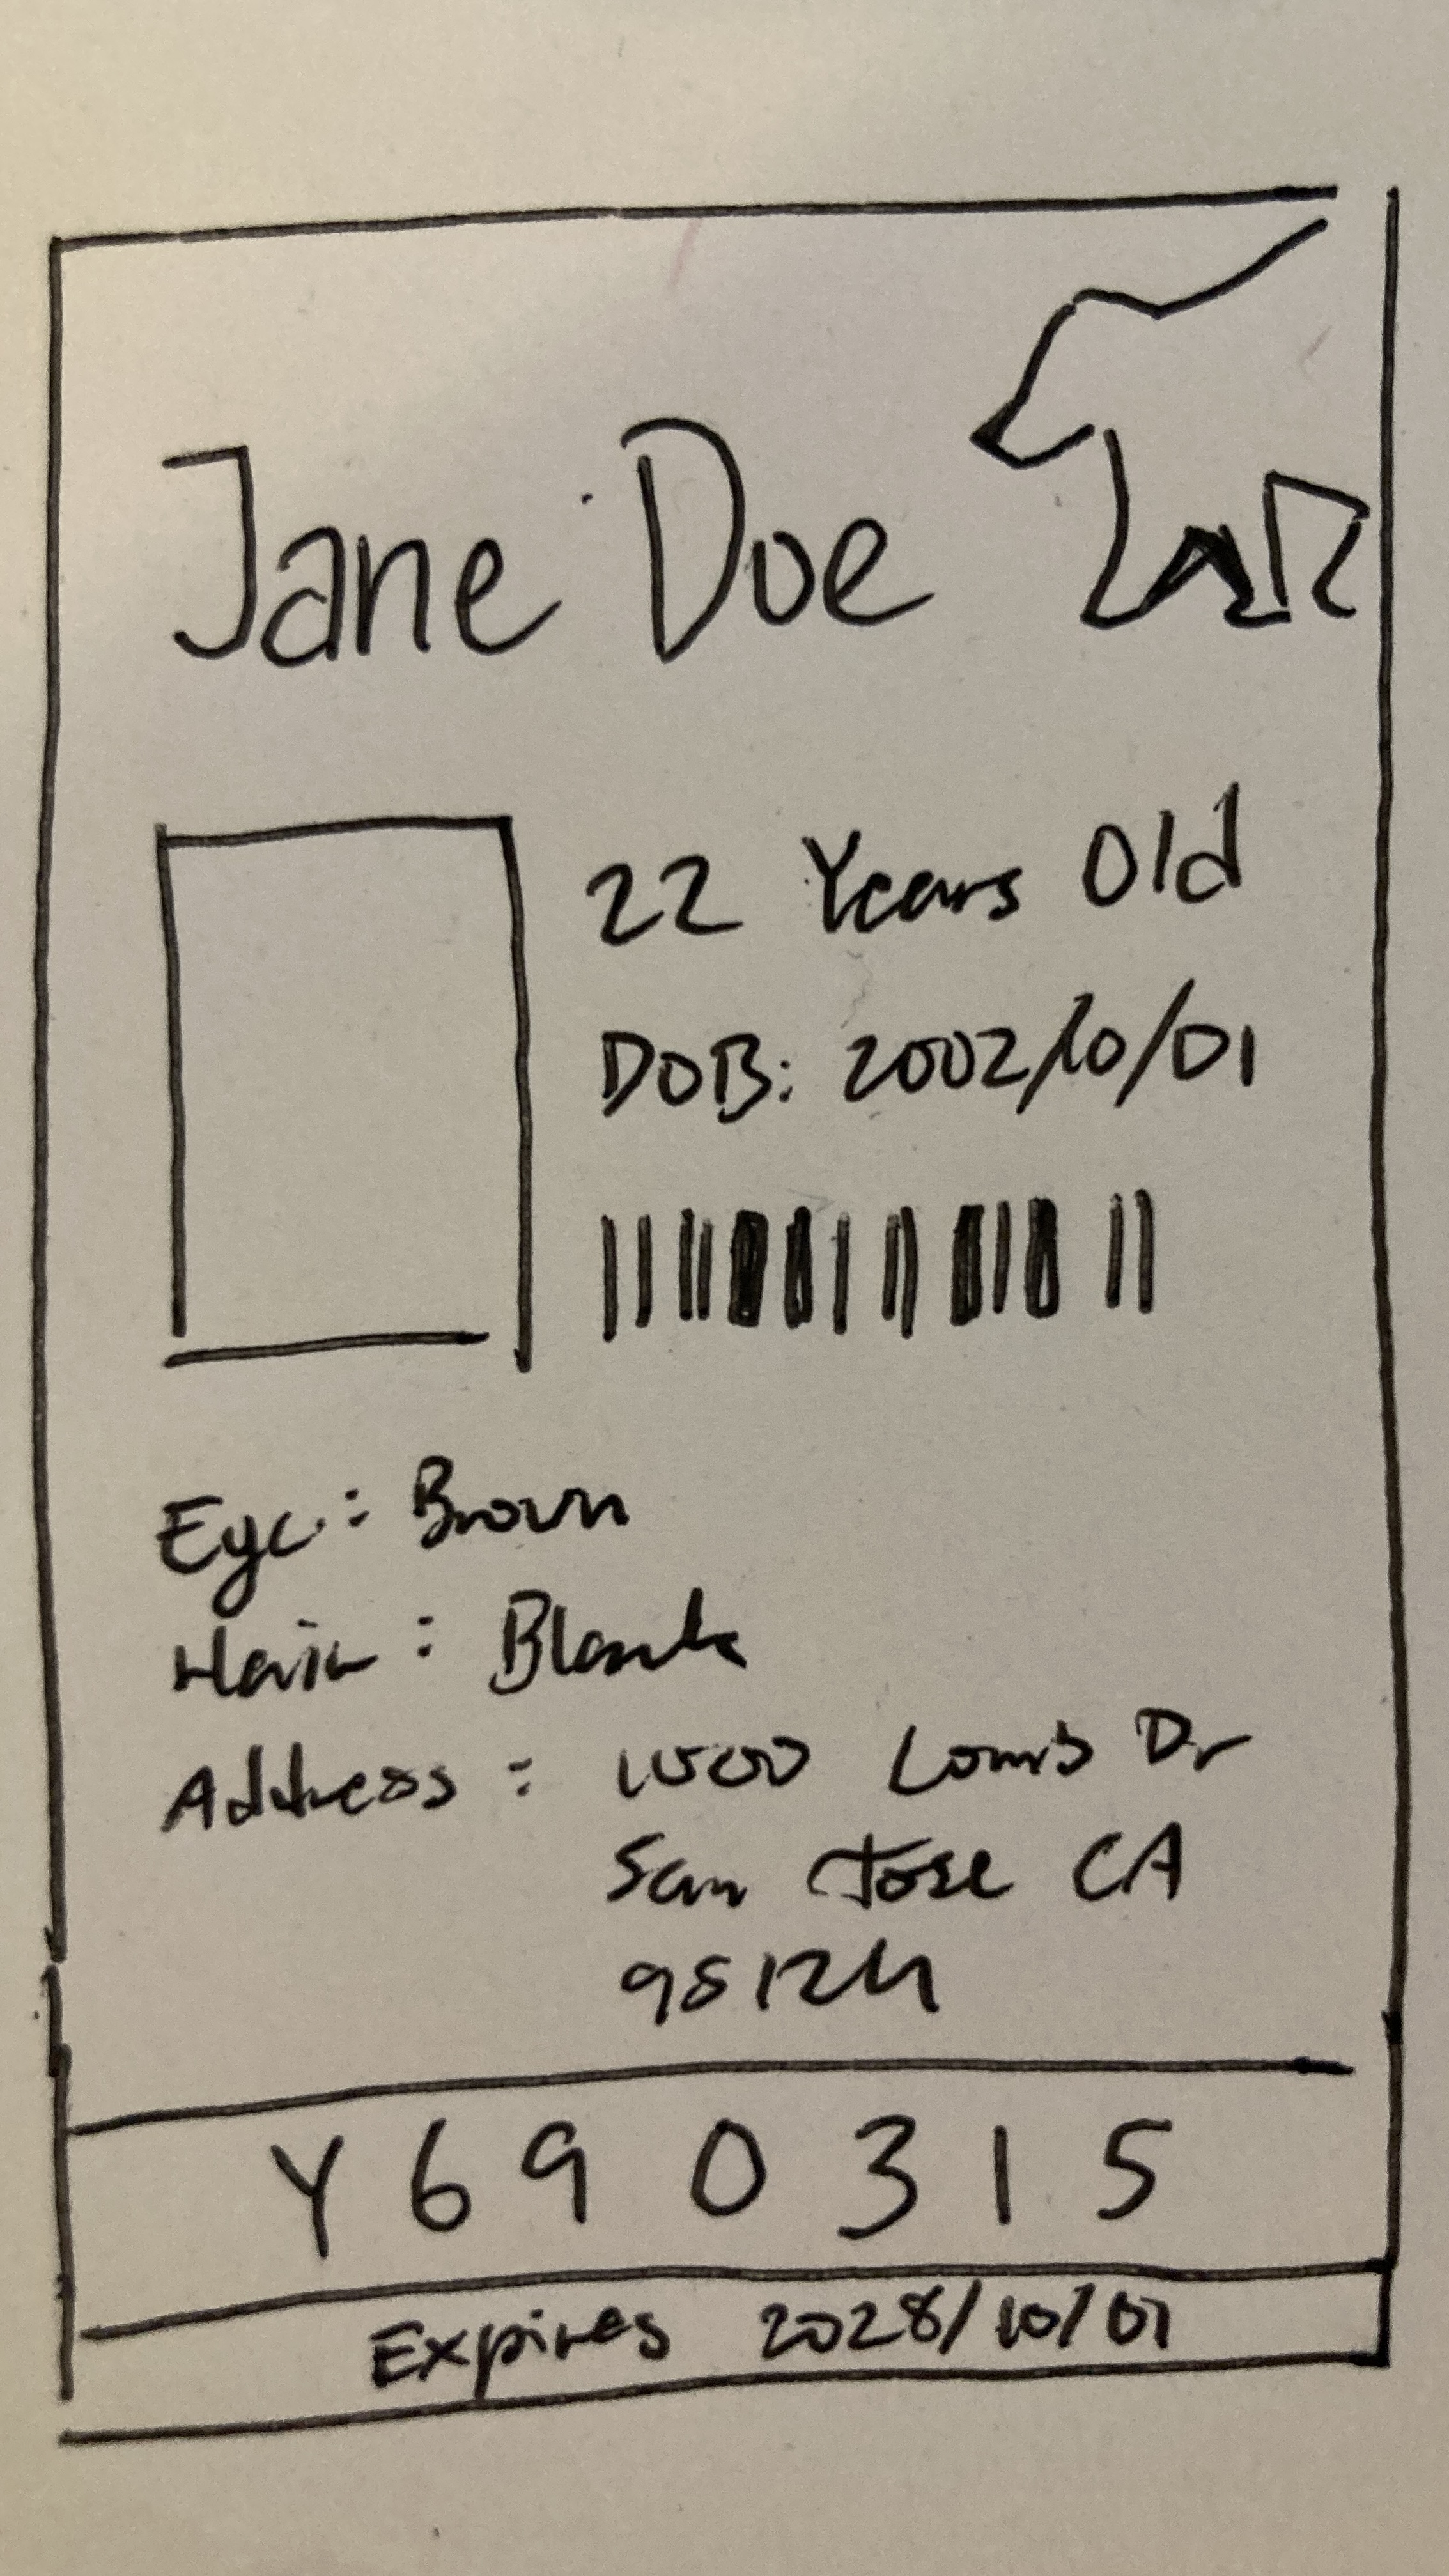 Jane Doe
22 Years Old
DOB: 2002/10/01
Eye: Brown
Hair: Black
Address: 1000 Louis Dr
San Jose CA
95124
Y690315
Expires 2028/10/01